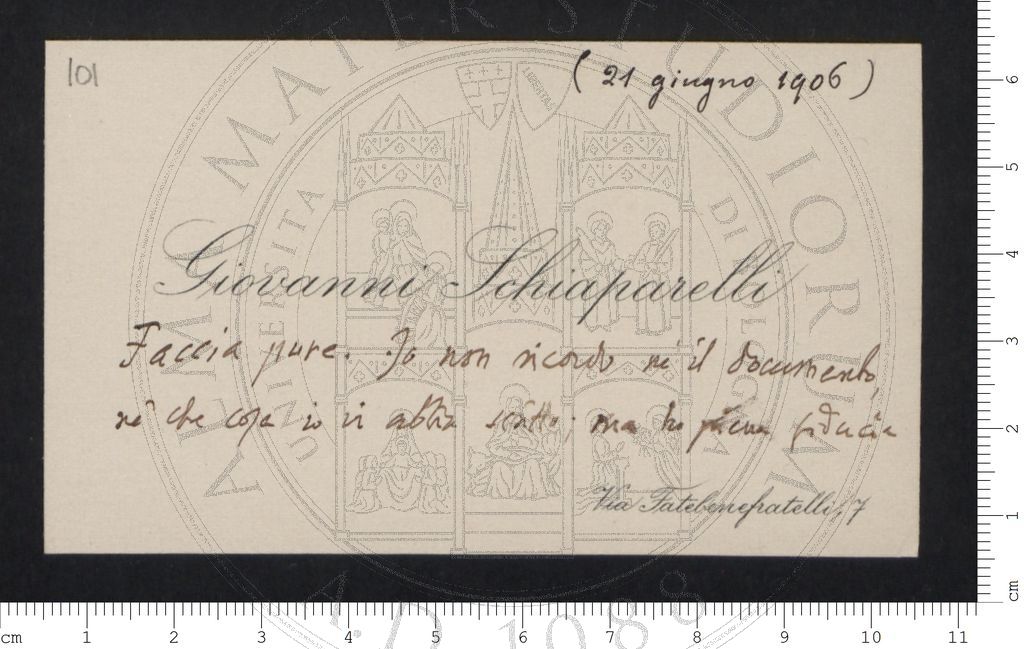 101
( 21 giugno 1906 )
Giovanni Schiaparelli
Faccia pure. Io non ricordo nè il documento,
nè che cosa io vi abbia scritto; ma ho piena fiducia
Via Fatebenefratelli, 7
ALMA MATER STUDIORUM
UNIVERSITA DI BOLOGNA
A.D. 1088
cm 1 2 3 4 5 6 7 8 9 10 11
cm 1 2 3 4 5 6